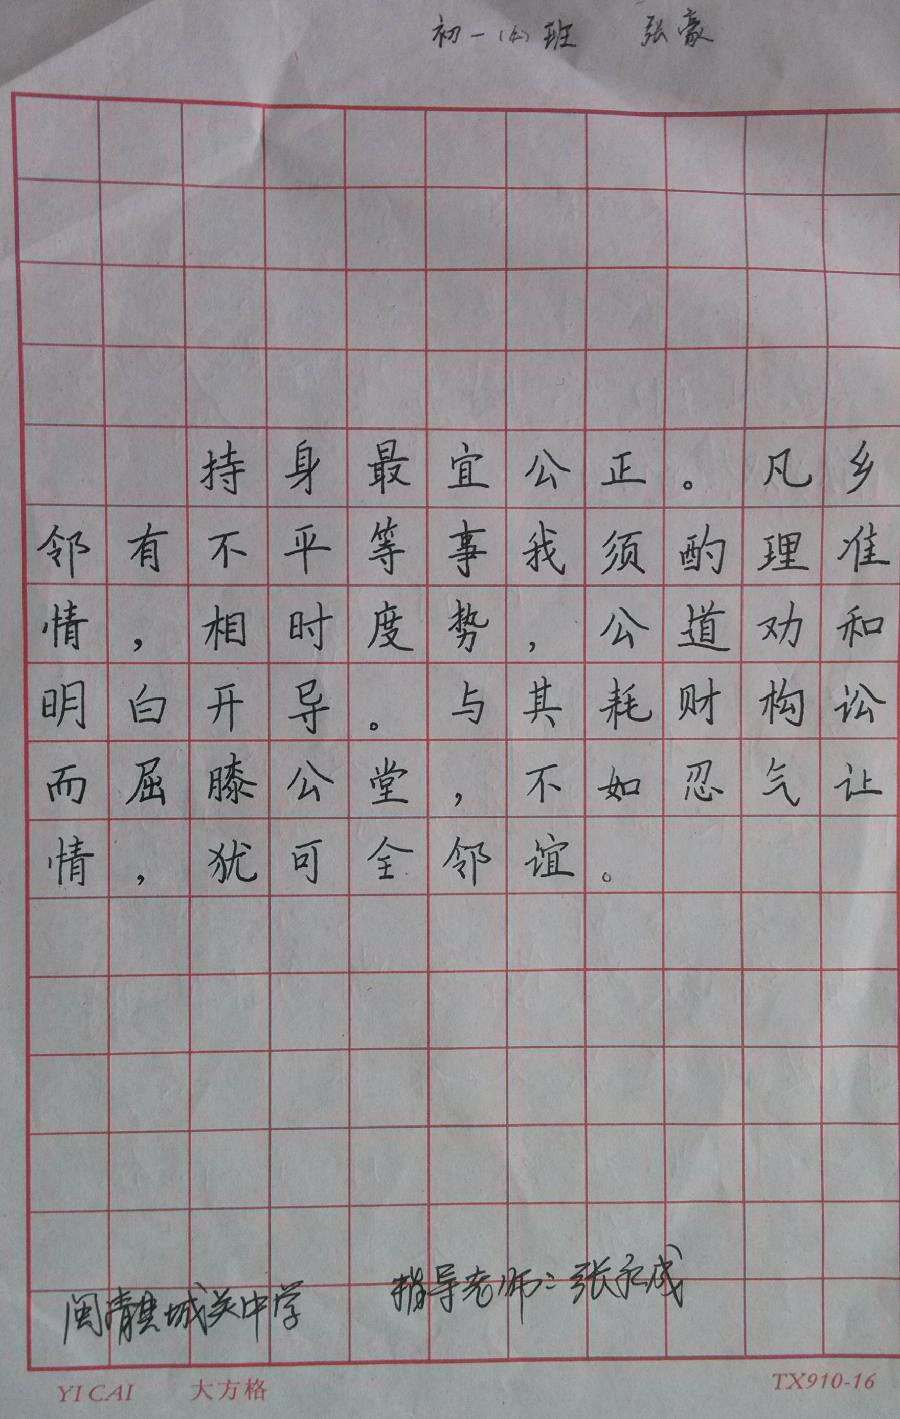 初一(七)班 张豪
持身最宜公正。凡乡
邻有不平等事我须酌理准
情，相时度势，公道劝和
明白开导。与其耗财构讼
而屈膝公堂，不如忍气让
情，犹可全邻谊。
闽清县城关中学 指导老师：张永成
YI CAI 大方格 TX910-16